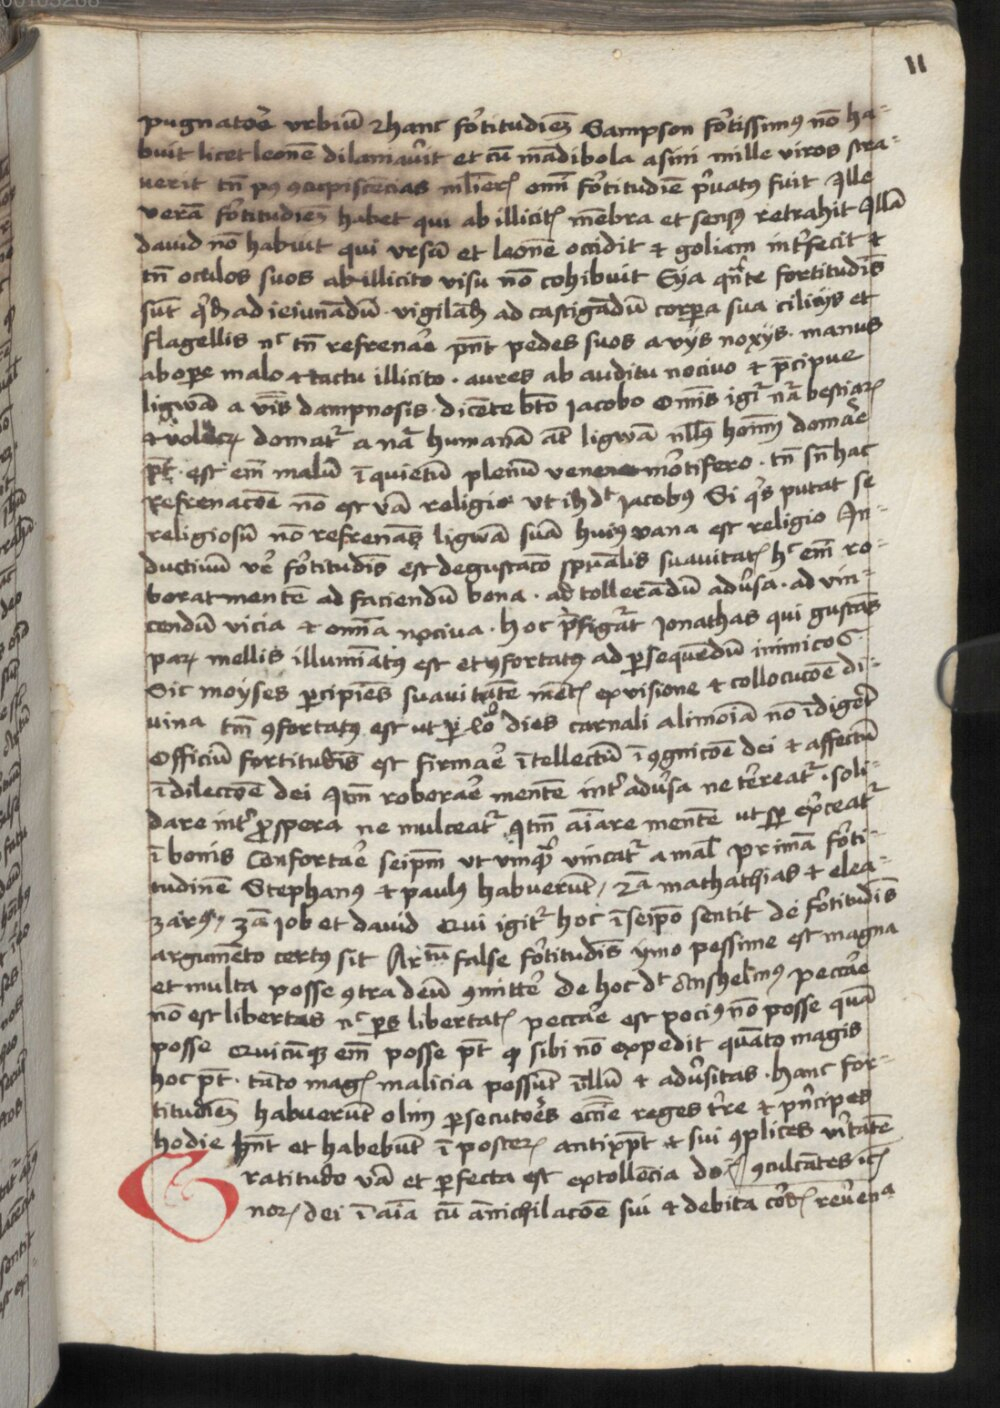 11
pugnatorē vrbiū 2 hanc fortitudiēz Sampson fortissimꝰ nō ha-
buit licet leonē dilaniauit et cū mādibola asini mille viros stra-
uerit tn̄ ꝯcupiscēcias mlierꝭ omī fortitudīe pͥuatꝰ fuit Ille
verā fortitudiēz habet qui ab illicitꝭ mēbra et sensꝰ retrahit Illā
dauid nō habuit qui vrsū et leonē occidit et goliam intfecit et
tn̄ oculos suos ab illicito visu nō cohibuit Eya qn̄te fortitudīs
sūt qͥdā ad ieiunādū · vigilādū ad castigādū corpora sua cilicijs et
flagellis nc tn̄ refrenare pn̄t pedes suos a vijs noxijs · manus
ab opere malo et tactu illicito · aures ab auditu nociuo et p̄cipue
ligwā a v̄bis dampnosis · dicēte bt̄o Iacobo Om̄is igr̄ nā bestiarꝝ
et volucrꝝ domat̄ a nā humanā at̄ ligwā nllꝰ hom̄ domare
pt̄ · est em̄ malū īquietū plenū veneno mortifero · tn̄ sn̄ hac
refrenacōe nō est v̄a religio vt ih dt Iacobꝰ Si qͥs putat se
religiosū nō refrenās ligwā suā huiꝰ vana est religio In-
ductiuū vē fortitudīs est degustacō spūalis suauitatꝭ hͨ em̄ ro-
borat mentē ad faciendū bona · ad tollerādū aduſa · ad vin-
cendū vicia et om̄ia nociua · hoc p̄figurat Ionathas qui gustās
parꝝ mellis illumīatꝰ est et ꝯfortatꝰ ad ꝑsequēdū inimicos
Sic moyses ꝑcipiēs suauitatē mētꝭ ex visione et collocucōe di-
uina tm̄ ꝯfortatꝰ est ut ꝑ 40 dies carnali alimoīa nō īdiget
Officiū fortitudīs est firmare ītellectū ī ꝯgnicōe dei et affectū
ī dileccōe dei Itm̄ roborare mentē int̄ aduſa ne terreat̄ · soli-
dare int̄ ꝓspera ne mulceat̄ Itm̄ aīare mentē ut sꝑ exerceat̄
ī bonis Confortare seipm̄ vt vnqͣ vincat̄ a mal Primā forti-
tudinē Stephanꝰ et paulꝰ habuerūt / 2ā mathathias et elea-
zarꝰ / 3ā Iob et dauid Qui igit̄ hoc ī seipō sentit de fortitudīs
argumēto certꝰ sit Artm̄ false fortitudīs ymo pessime est magna
et multa posse ꝯtra deū ꝯmitte De hoc dt Anshelmꝰ peccare
nō est libertas nͨ ꝑs libertatꝭ peccare est pociꝰ nō posse quā
posse Quicūqꝫ em̄ posse pt̄ qͦ sibi nō expedit quāto magis
hoc pt̄ · tāto magꝭ malicia possūt illū et aduſitas · Hanc for-
titudiēz habuerūt olim ꝑsecutores ecc̄ie reges tr̄e et pn̄cipes
hodie hn̄t et habebūt ī posterꝝ antixp̄t et sui ꝯplices v̄itatē
Gratitudo v̄a et ꝑfecta est extollēcia do ꝯculcātes
norꝝ dei ī aīa cū ānichilacōe sui et debita cordꝭ reuerena